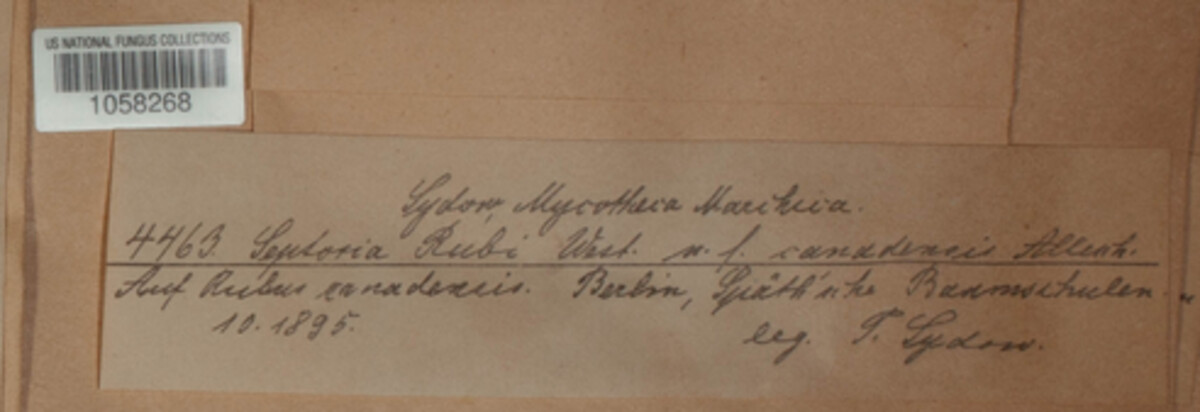 US NATIONAL FUNGUS COLLECTIONS
1058268
Sydow, Mycotheca Marchica.
4463. Septoria Rubi West. n. f. canadensis Allesch.
Auf Rubus canadensis. Berlin, Späth'sche Baumschulen.
10. 1895.
leg. P. Sydow.